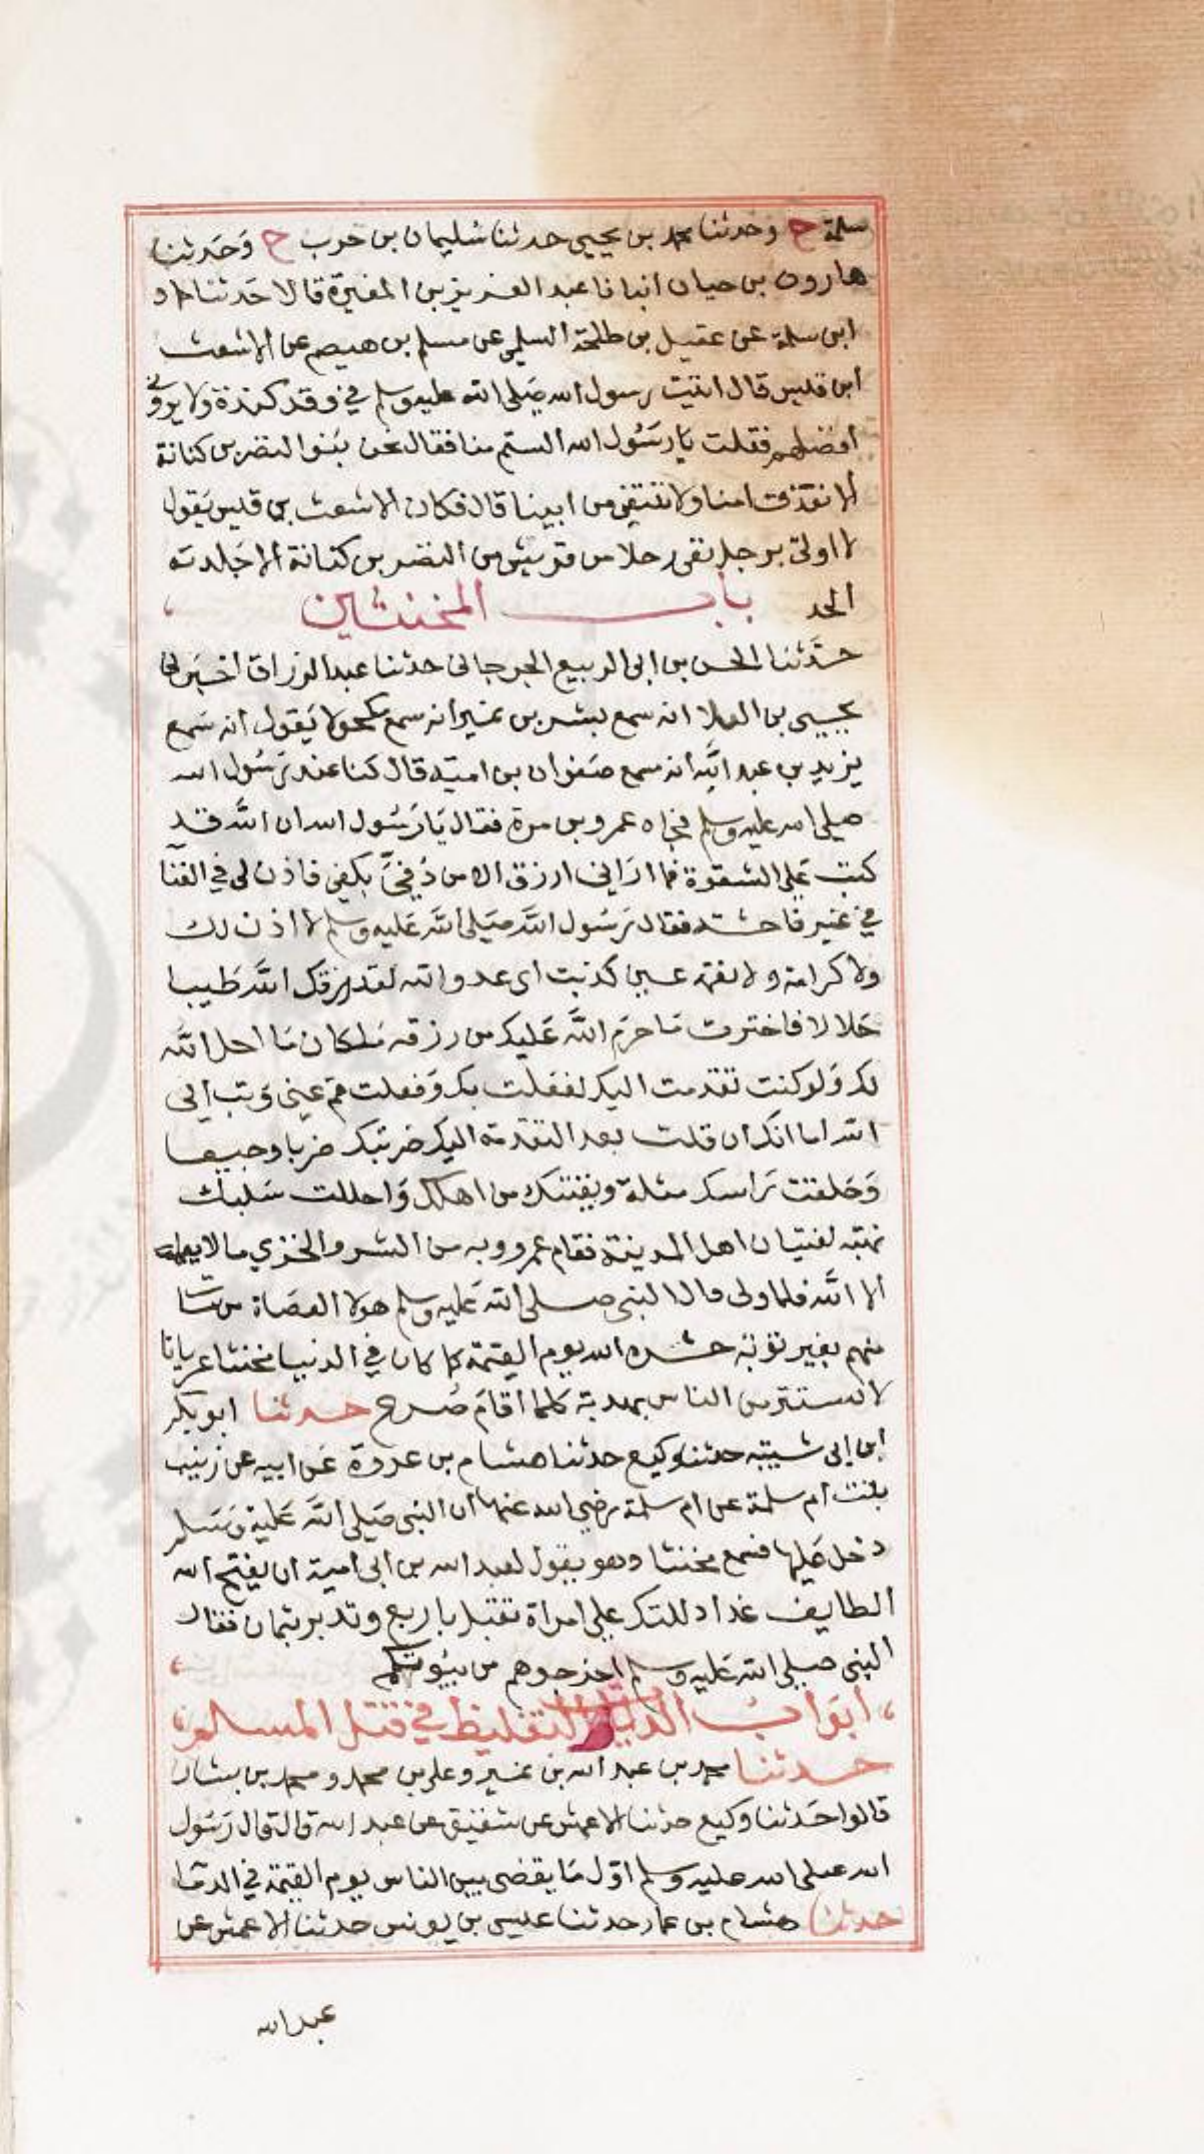 سلمة ح وحدثنا محمد بن يحيى حدثنا سليمان بن حرب ح وحدثنا
هارون بن حيان انبانا عبد العزيز بن المغيرة قالا حدثنا حماد
ابن سلمة عن عقيل بن طلحة السلمي عن مسلم بن هيصم عن الاشعث
ابن قيس قال اتيت رسول الله صلى الله عليه وسلم في وفد كندة ولا يروني
افضلهم فقلت يا رسول الله الستم منا فقال نحن بنو النضر بن كنانة
لا نقذف امنا ولا ننتفي من ابينا قال فكان الاشعث بن قيس يقول
لا اوتي برجل نفى رجلا من قريش من النضر بن كنانة الا جلدته
الحد باب المخنثين
حدثنا الحسن بن ابي الربيع الجرجاني حدثنا عبد الرزاق اخبرني
يحيى بن العلا انه سمع بشر بن نمير انه سمع مكحولا يقول انه سمع
يزيد بن عبد الله انه سمع صفوان بن امية قال كنا عند رسول الله
صلى الله عليه وسلم فجاه عمرو بن مرة فقال يا رسول الله ان الله قد
كتب علي الشقوة فما اراني ارزق الا من دفي بكفي فاذن لي في الغنا
في غير فاحشة فقال رسول الله صلى الله عليه وسلم لا اذن لك
ولا كرامة ولا نعمة عين كذبت اى عدو الله لقد رزقك الله طيبا
حلالا فاخترت ما حرم الله عليك من رزقه مكان ما احل الله
لك ولو كنت تقدمت اليك لفعلت بك وفعلت قم عني وتب الى
الله اما انك ان قلت بعد التقدمة اليك ضربتك ضربا وجيعا
وحلقت راسك مثلة ونفيتك من اهلك واحللت سلبك
نهبة لفتيان اهل المدينة فقام عمرو وبه من الشر والخزي ما لا يعلمه
الا الله فلما ولى قال النبي صلى الله عليه وسلم هولا العصاة من مات
منهم بغير توبة حشره الله يوم القيمة كما كان في الدنيا مخنثا عريانا
لا يستتر من الناس بهدبة كلما اقام صرع حدثنا ابو بكر
ابن ابي شيبة حدثنا وكيع حدثنا هشام بن عروة عن ابيه عن زينب
بنت ام سلمة عن ام سلمة رضي الله عنها ان النبي صلى الله عليه وسلم
دخل عليها فسمع مخنثا وهو يقول لعبد الله بن ابي امية ان يفتح الله
الطايف غدا دللتك على امراة تقبل باربع وتدبر بثمان فقال
النبي صلى الله عليه وسلم اخرجوهم من بيوتكم
ابواب الديات التغليظ في قتل المسلم
حدثنا محمد بن عبد الله بن نمير وعلي بن محمد ومحمد بن بشار
قالوا حدثنا وكيع حدثنا الاعمش عن شقيق عن عبد الله قال قال رسول
الله صلى الله عليه وسلم اول ما يقضى بين الناس يوم القيمة في الدما
حدثنا هشام بن عمار حدثنا عيسى بن يونس حدثنا الاعمش عن
عبد الله